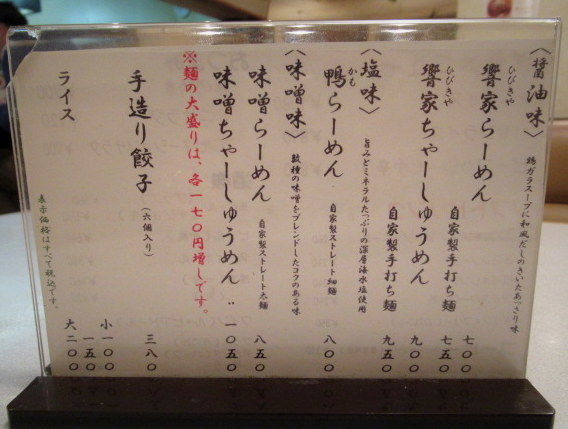 〈醤油味〉 鶏ガラスープに和風だしのきいたあっさり味
響家らーめん 七〇〇
ひびきや
自家製手打ち麺 七五〇
響家ちゃーしゅうめん 九〇〇
ひびきや
自家製手打ち麺 九五〇
〈塩味〉 旨みとミネラルたっぷりの深層海水塩使用
鴨らーめん 自家製ストレート細麺 八〇〇
かも
〈味噌味〉 数種の味噌をブレンドしたコクのある味
味噌らーめん 自家製ストレート太麺 八五〇
味噌ちゃーしゅうめん‥一〇五〇
※麺の大盛りは、各一七〇円増しです。
手造り餃子(六個入り) 三八〇
ライス 小一〇〇
一五〇
大二〇〇
表示価格はすべて税込です。